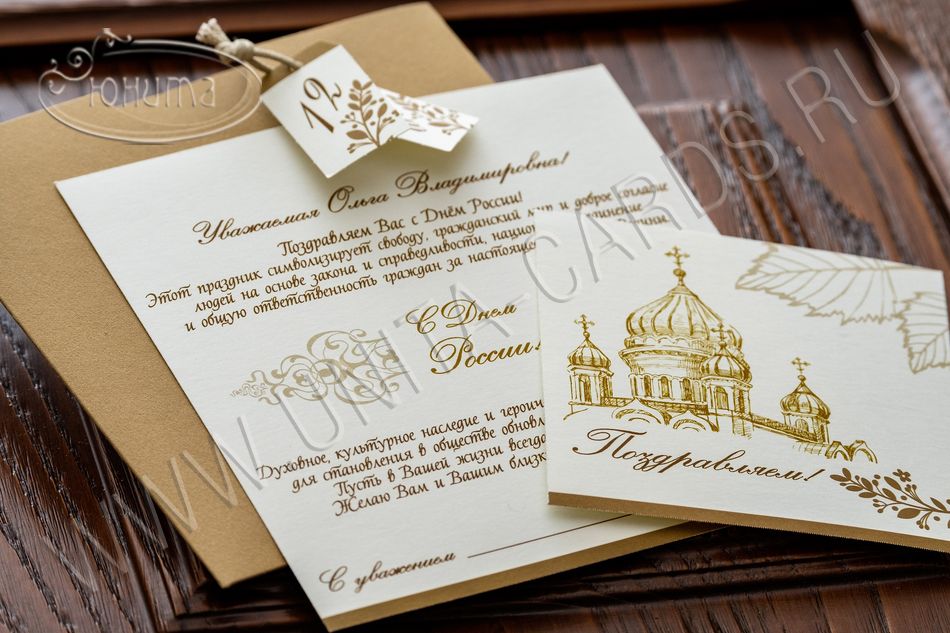 Юнита
12
Уважаемая Ольга Владимировна!
Поздравляем Вас с Днём России!
Этот праздник символизирует свободу, гражданский мир и доброе согласие
людей на основе закона и справедливости, национ
и общую ответственность граждан за настоящ
С Днем
России!
Духовное, культурное наследие и героич
для становления в обществе обновл
Пусть в Вашей жизни всегда
Желаю Вам и Вашим близк
С уважением
Поздравляем!
WWW.UNITA-CARDS.RU